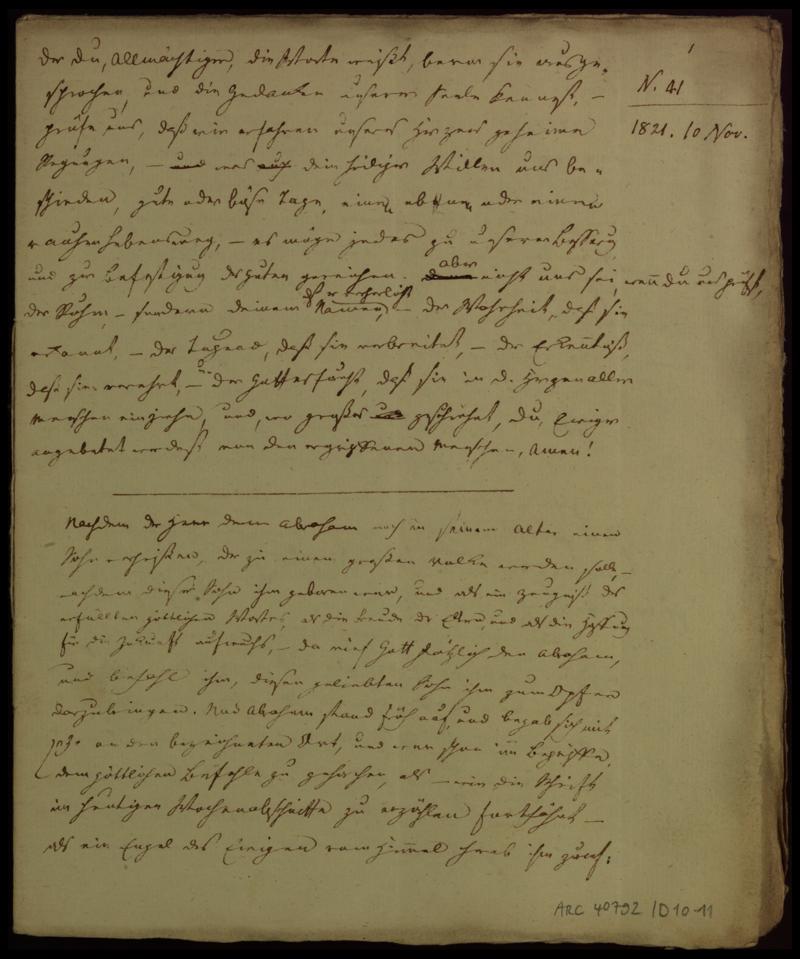 1
N. 41
1821. 10 Nov.
der du, Allmächtiger, die Worte weißt, bevor sie ausge-
sprochen, und die Gedanken unserer Seele kennest, –
prüfe uns, daß wir erfahren unseres Herzens geheime
Regungen, – und was auch dein heiliger Willen uns be-
schieden, gute oder böse Tage, einen ebnen oder einen
rauhen Lebensweg, – es möge jedes zu unserer Besserung
und zur Befestigung des Guten gereichen. aber nicht uns sei, wenn du uns prüfst,
der Ruhm, – sondern deinem Namen, – der Wahrheit, daß sie
erkannt, – der Tugend, daß sie verbreitet, – der Erkenntniß,
daß sie verehrt, – u. der Gottesfurcht, daß sie in d. Herzen aller
Menschen einziehe, und, wo großes geschiehet, du, Ewiger
angebetet werdest von den ergriffenen Menschen, Amen!
Nachdem der Herr dem Abraham noch in seinem Alter einen
Sohn verheißen, der zu einem großen Volke werden sollte, –
nachdem dieser Sohn ihm geboren war, und als ein Zeugniß des
erfüllten göttlichen Wortes, als die Freude der Eltern, und als die Hoffnung
für die Zukunft aufwuchs, – da rief Gott plötzlich den Abraham,
und befahl ihm, diesen geliebten Sohn ihm zum Opfer
darzubringen. Und Abraham stand früh auf, und begab sich mit
an den bezeichneten Ort, und war schon im Begriffe,
dem göttlichen Befehle zu gehorchen, als – wie die Schrift
im heutigen Wochenabschnitte zu erzählen fortfährt –
als ein Engel des Ewigen vom Himmel herab ihm zurief:
ARC 40792 /D10-11